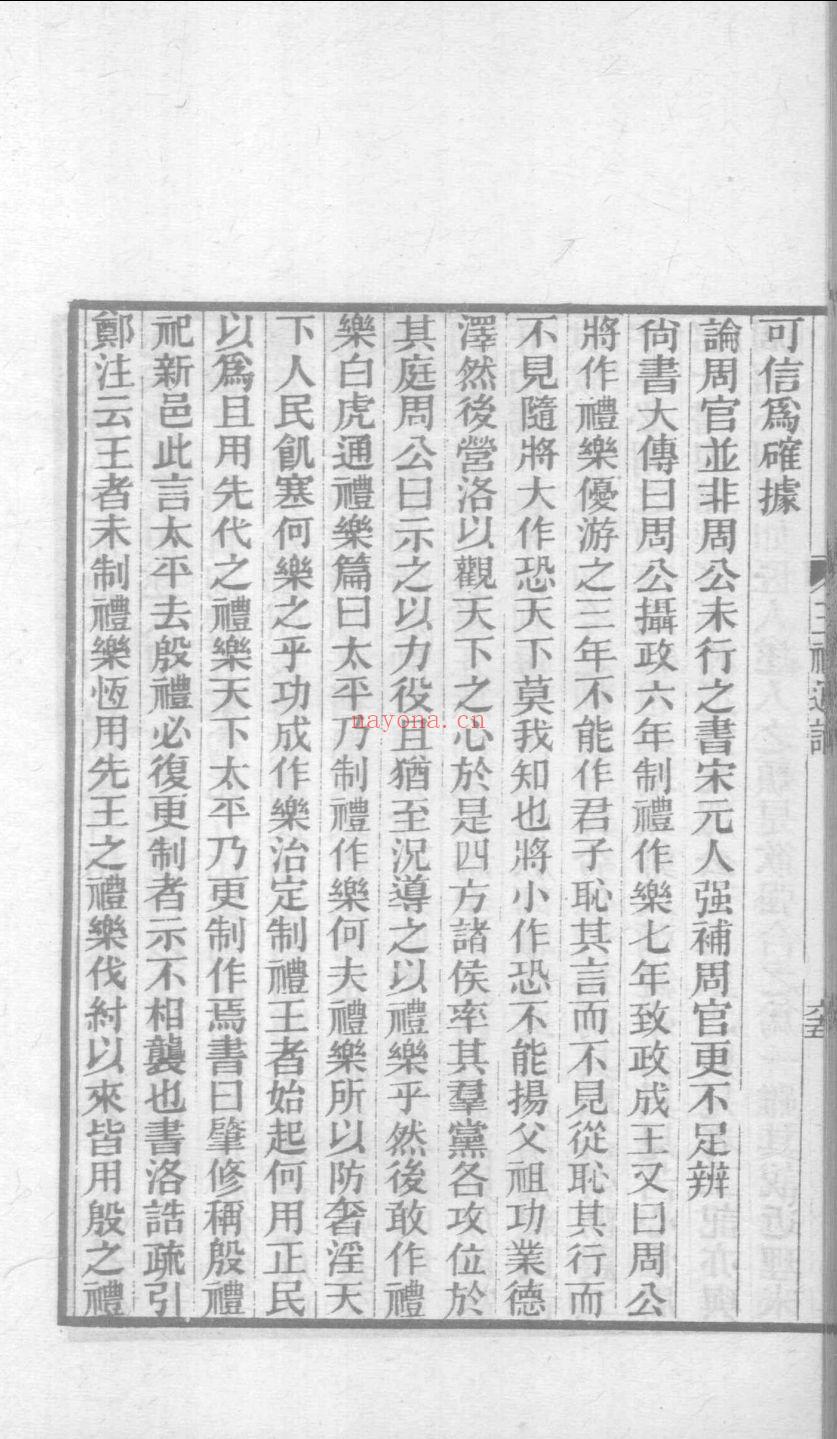 可信爲確據
論周官並非周公未行之書宋元人强補周官更不足辨
尙書大傳曰周公攝政六年制禮作樂七年致政成王又曰周公
將作禮樂優游之三年不能作君子恥其言而不見從恥其行而
不見隨將大作恐天下莫我知也將小作恐不能揚父祖功業德
澤然後營洛以觀天下之心於是四方諸侯率其羣黨各攻位於
其庭周公曰示之以力役且猶至況導之以禮樂乎然後敢作禮
樂白虎通禮樂篇曰太平乃制禮作樂何夫禮樂所以防奢淫天
下人民飢寒何樂之乎功成作樂治定制禮王者始起何用正民
以爲且用先代之禮樂天下太平乃更制作焉書曰肇修稱殷禮
祀新邑此言太平去殷禮必復更制者示不相襲也書洛誥疏引
鄭注云王者未制禮樂恆用先王之禮樂伐紂以來皆用殷之禮
三禮通論
nayona.cn